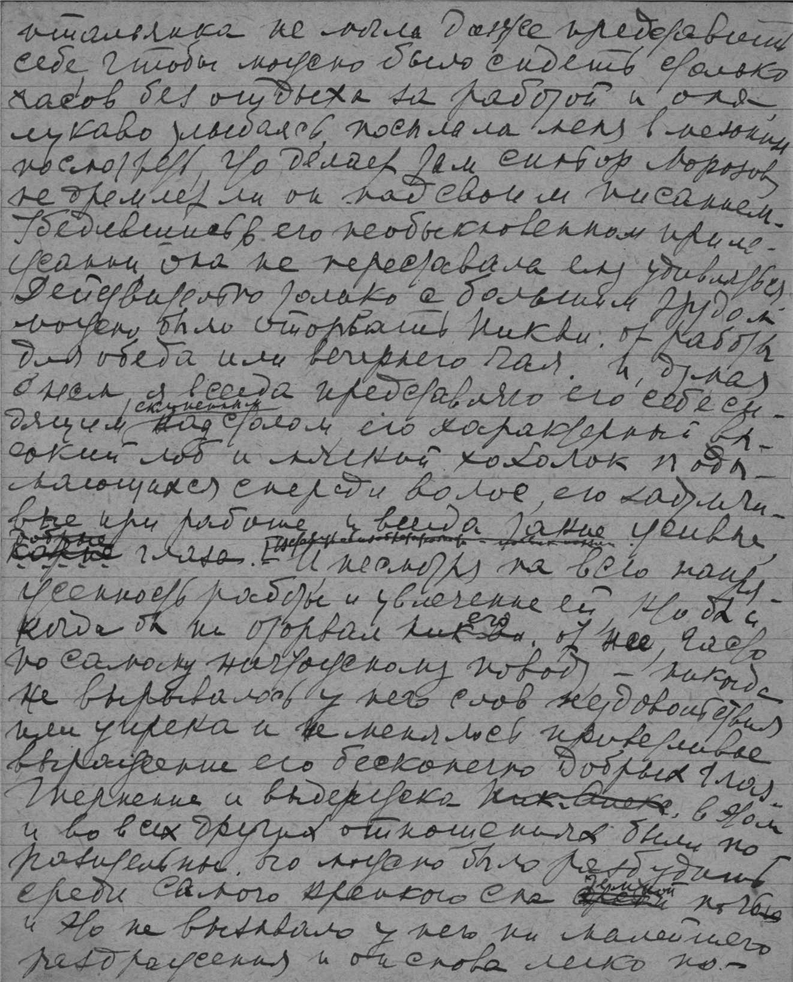 итальянка не могла даже представить
себе, чтобы можно было сидеть столько
часов без отдыха за работой и она,
лукаво улыбаясь, посылала меня в мезонин
посмотреть, что делает там синьор Морозов,
не дремлет ли он над своим писанием.
Убедившись в его необыкновенном приле-
жании она не переставала ему удивляться.
Действительно только с большим трудом
можно было оторвать Никви. от работы
для обеда или вечернего чая. И, думая
о нем, я всегда представляю его себе си-
дящим, склоненным
над столом его характерный вы-
сокий лоб и мягкий хохолок поды-
мающихся спереди волос, его задумчи-
вые при работе, и всегда такие живые,
добрые
глаза. – И несмотря на всю напря-
женность работы и увлечение ей, кто бы и
когда бы ни оторвал его от нее, часто
по самому ничтожному поводу, – никогда
не вырывалось у него слов неудовольствия
или упрека и не менялось приветливое
выражение его бесконечно добрых глаз.
Терпение и выдержка Ник. Алекс. в этом
и во всех других отношениях были по
разительны. Его можно было разбудить
среди самого крепкого сна темной ночью
и это не вызывало у него ни малейшего
раздражения и он снова легко по-